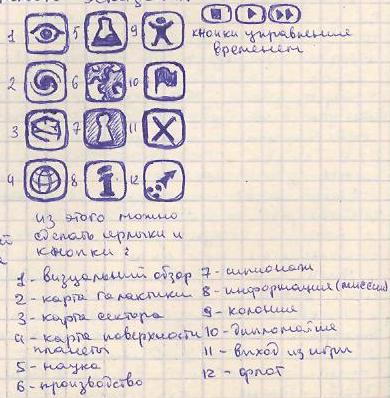 1 5 9
кнопки управление
временем
2 6 10
3 7 11
4 8 12
из этого можно
сделать ярлыки и
кнопки :
1 - визуальный обзор
2 - карта галактики
3 - карта сектора
4 - карта поверхности
планеты
5 - наука
6 - производство
7 - шпионаж
8 - информация (миссии)
9 - колонии
10 - дипломатие
11 - выход из игры
12 - флот